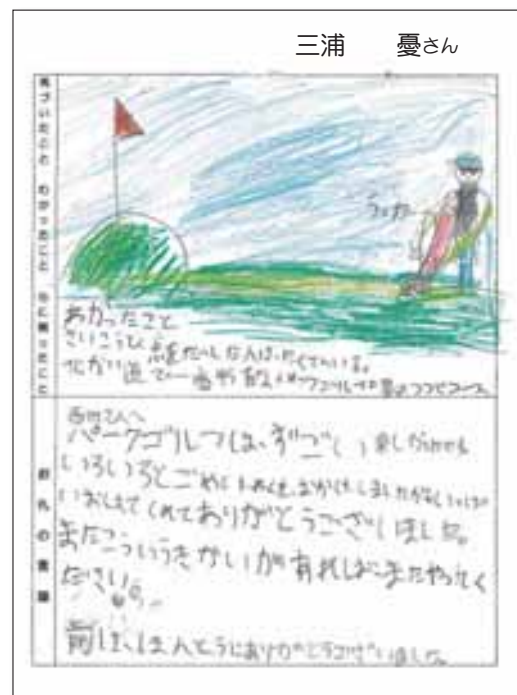 三浦 憂さん
気づいたこと わかったこと 心に残ったこと
ラッカー
わかったこと
さいこうひ 線をだした人はたくさんいる。
北かい道で一番 パークゴルフ 場はつつじコース
お礼の言葉
西村さんへ
パークゴルフは、すごく楽しかったです
いろいろとごめいわくをおかけしましたがいっぱ
いおしえてくれてありがとうございました。
またこういうきかいが有ればまたやってく
ださい。
前は、ほんとうにありがとうございました。